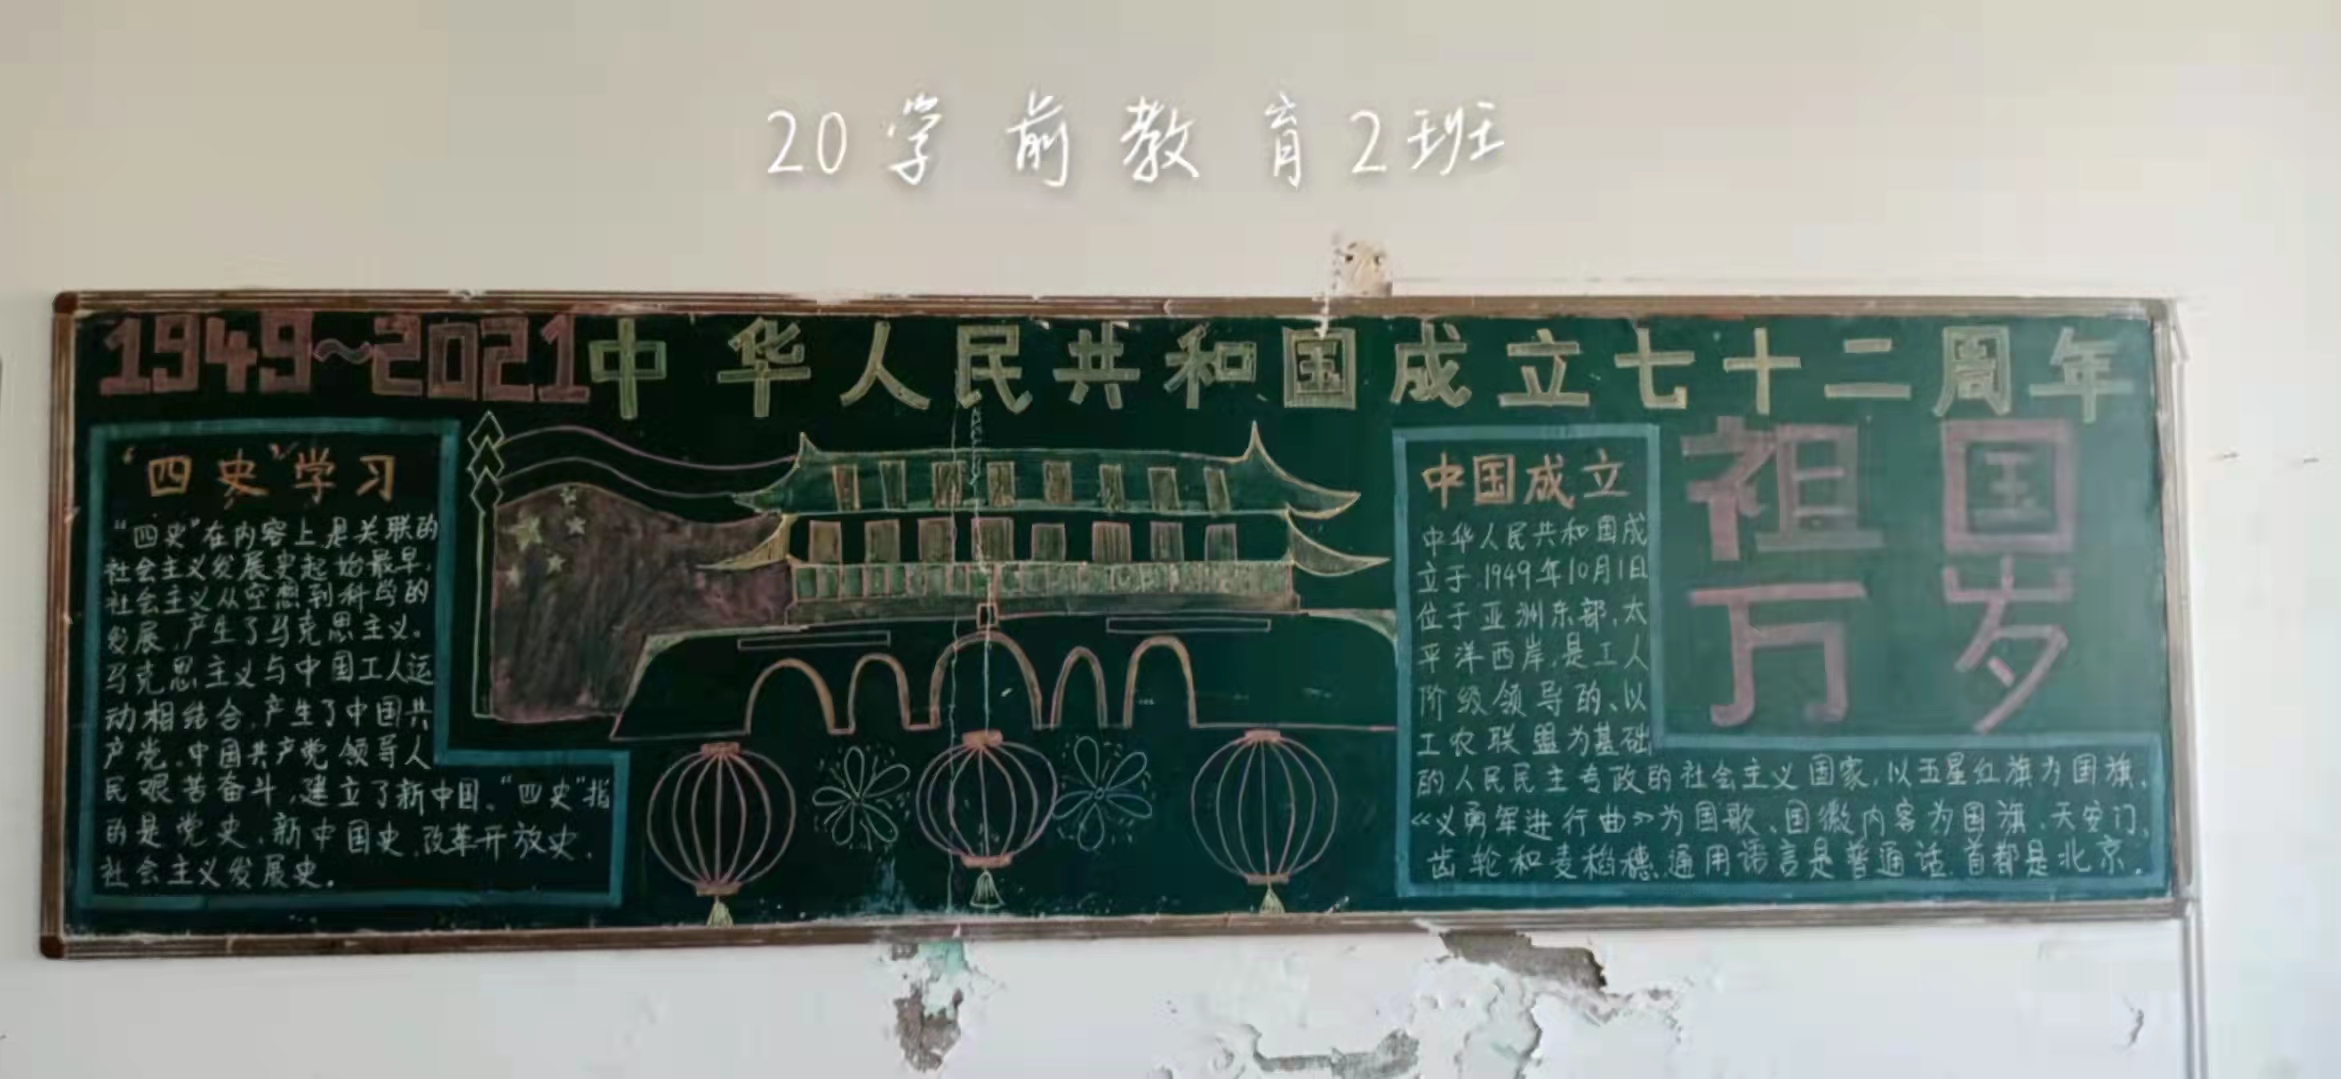 20学前教育2班
1949~2021中华人民共和国成立七十二周年
“四史”学习
“四史”在内容上是关联的
社会主义发展史起始最早,
社会主义从空想到科学的
发展,产生了马克思主义。
马克思主义与中国工人运
动相结合,产生了中国共
产党,中国共产党领导人
民艰苦奋斗,建立了新中国。“四史”指
的是党史,新中国史,改革开放史,
社会主义发展史。
中国成立
中华人民共和国成
立于,1949年10月1日
位于亚洲东部,太
平洋西岸,是工人
阶级领导的、以
工农联盟为基础
的人民民主专政的社会主义国家,以五星红旗为国旗,
《义勇军进行曲》为国歌、国徽内容为国旗,天安门,
齿轮和麦稻穗,通用语言是普通话,首都是北京。
祖国
万岁